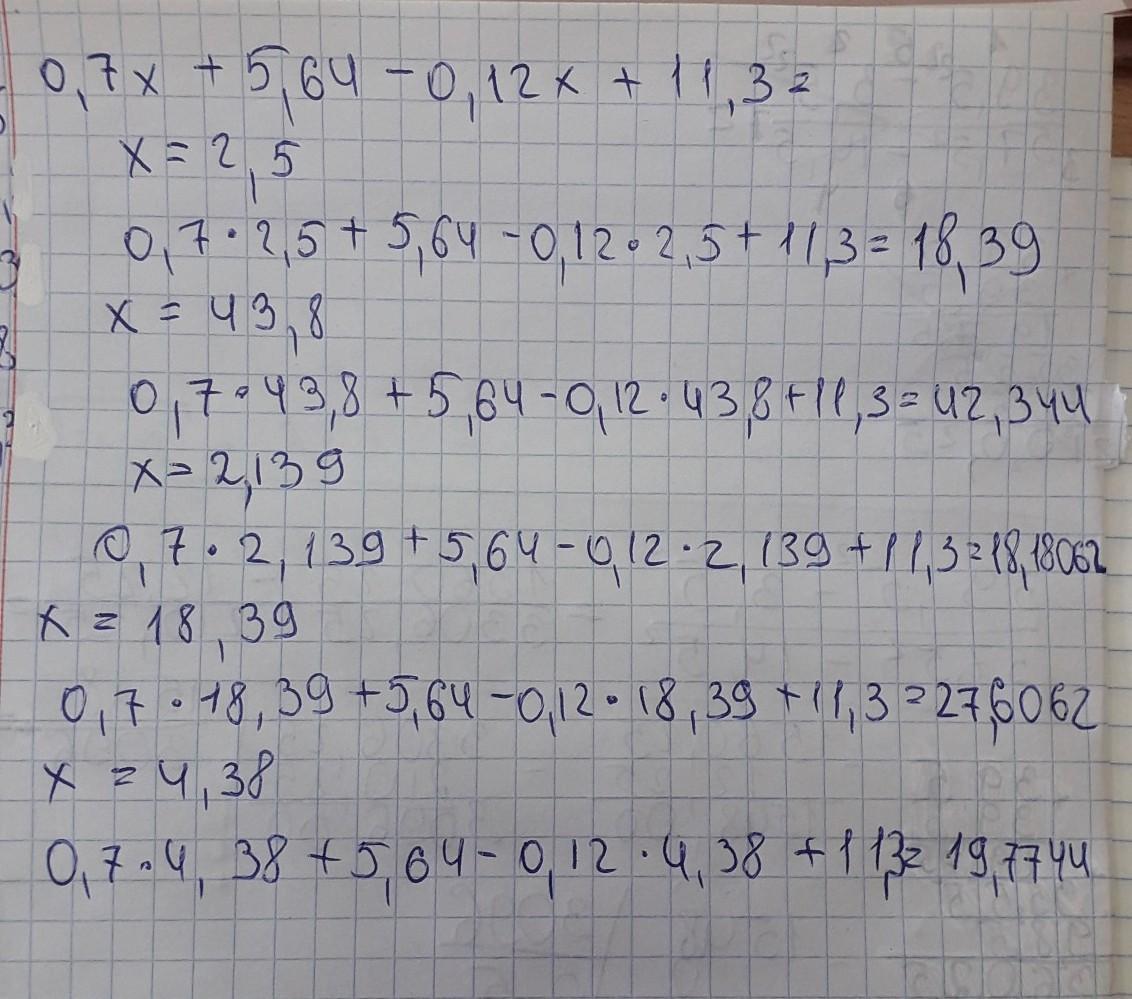 0,7x + 5,64 - 0,12x + 11,3 =
x = 2,5
0,7·2,5 + 5,64 - 0,12·2,5 + 11,3 = 18,39
x = 43,8
0,7·43,8 + 5,64 - 0,12·43,8 + 11,3 = 42,344
x = 2,139
0,7·2,139 + 5,64 - 0,12·2,139 + 11,3 = 18,18062
x = 18,39
0,7·18,39 + 5,64 - 0,12·18,39 + 11,3 = 27,6062
x = 4,38
0,7·4,38 + 5,64 - 0,12·4,38 + 11,3 = 19,7744